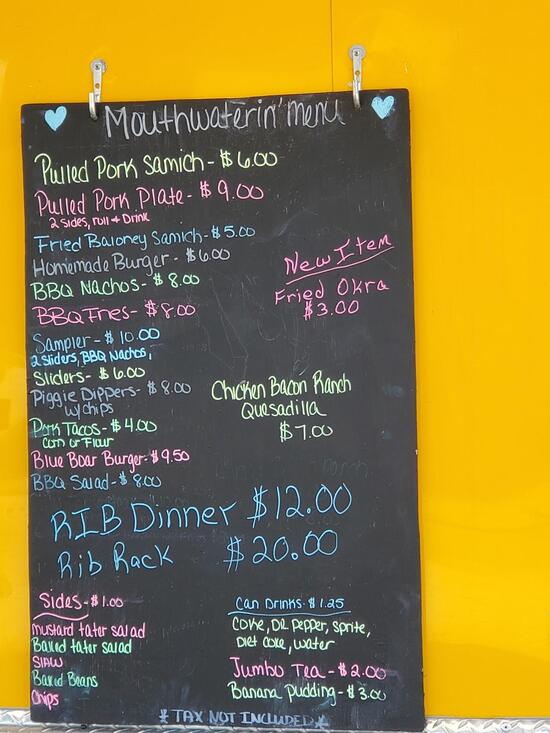 Mouthwaterin' menu
Pulled Pork Samich - $6.00
Pulled Pork Plate - $9.00
2 sides, roll + Drink
Fried Baloney Samich - $5.00
Homemade Burger - $6.00
BBQ Nachos - $8.00
BBQ Fries - $8.00
Sampler - $10.00
2 Sliders, BBQ Nachos,
Sliders - $6.00
Piggie Dippers - $8.00
w/chips
Pork Tacos - $4.00
Corn or Flour
Blue Boar Burger - $9.50
BBQ Salad - $8.00
New Item
Fried Okra
$3.00
Chicken Bacon Ranch
Quesadilla
$7.00
RIB Dinner $12.00
Rib Rack $20.00
Sides - $1.00
mustard tater salad
Baked tater salad
Slaw
Baked Beans
Chips
Can Drinks - $1.25
Coke, Dr. Pepper, Sprite,
Diet Coke, water
Jumbo Tea - $2.00
Banana Pudding - $3.00
* TAX NOT INCLUDED *